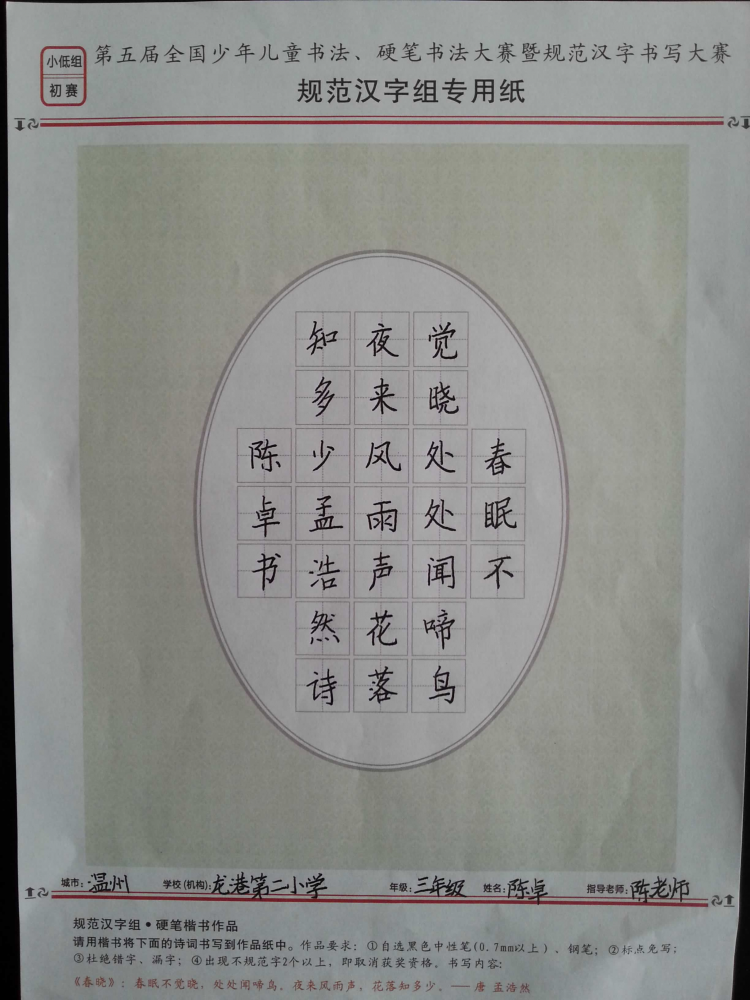 小低组
初赛
第五届全国少年儿童书法、硬笔书法大赛暨规范汉字书写大赛
规范汉字组专用纸
春眠不
觉晓处处闻啼鸟
夜来风雨声花落
知多少孟浩然诗
陈卓书
城市：温州 学校(机构)：龙港第二小学 年级：三年级 姓名：陈卓 指导老师：陈老师
规范汉字组•硬笔楷书作品
请用楷书将下面的诗词书写到作品纸中。作品要求：①自选黑色中性笔(0.7mm以上)、钢笔；②标点免写；
③杜绝错字、漏字；④出现不规范字2个以上，即取消获奖资格。书写内容：
《春晓》：春眠不觉晓，处处闻啼鸟。夜来风雨声，花落知多少。——唐 孟浩然